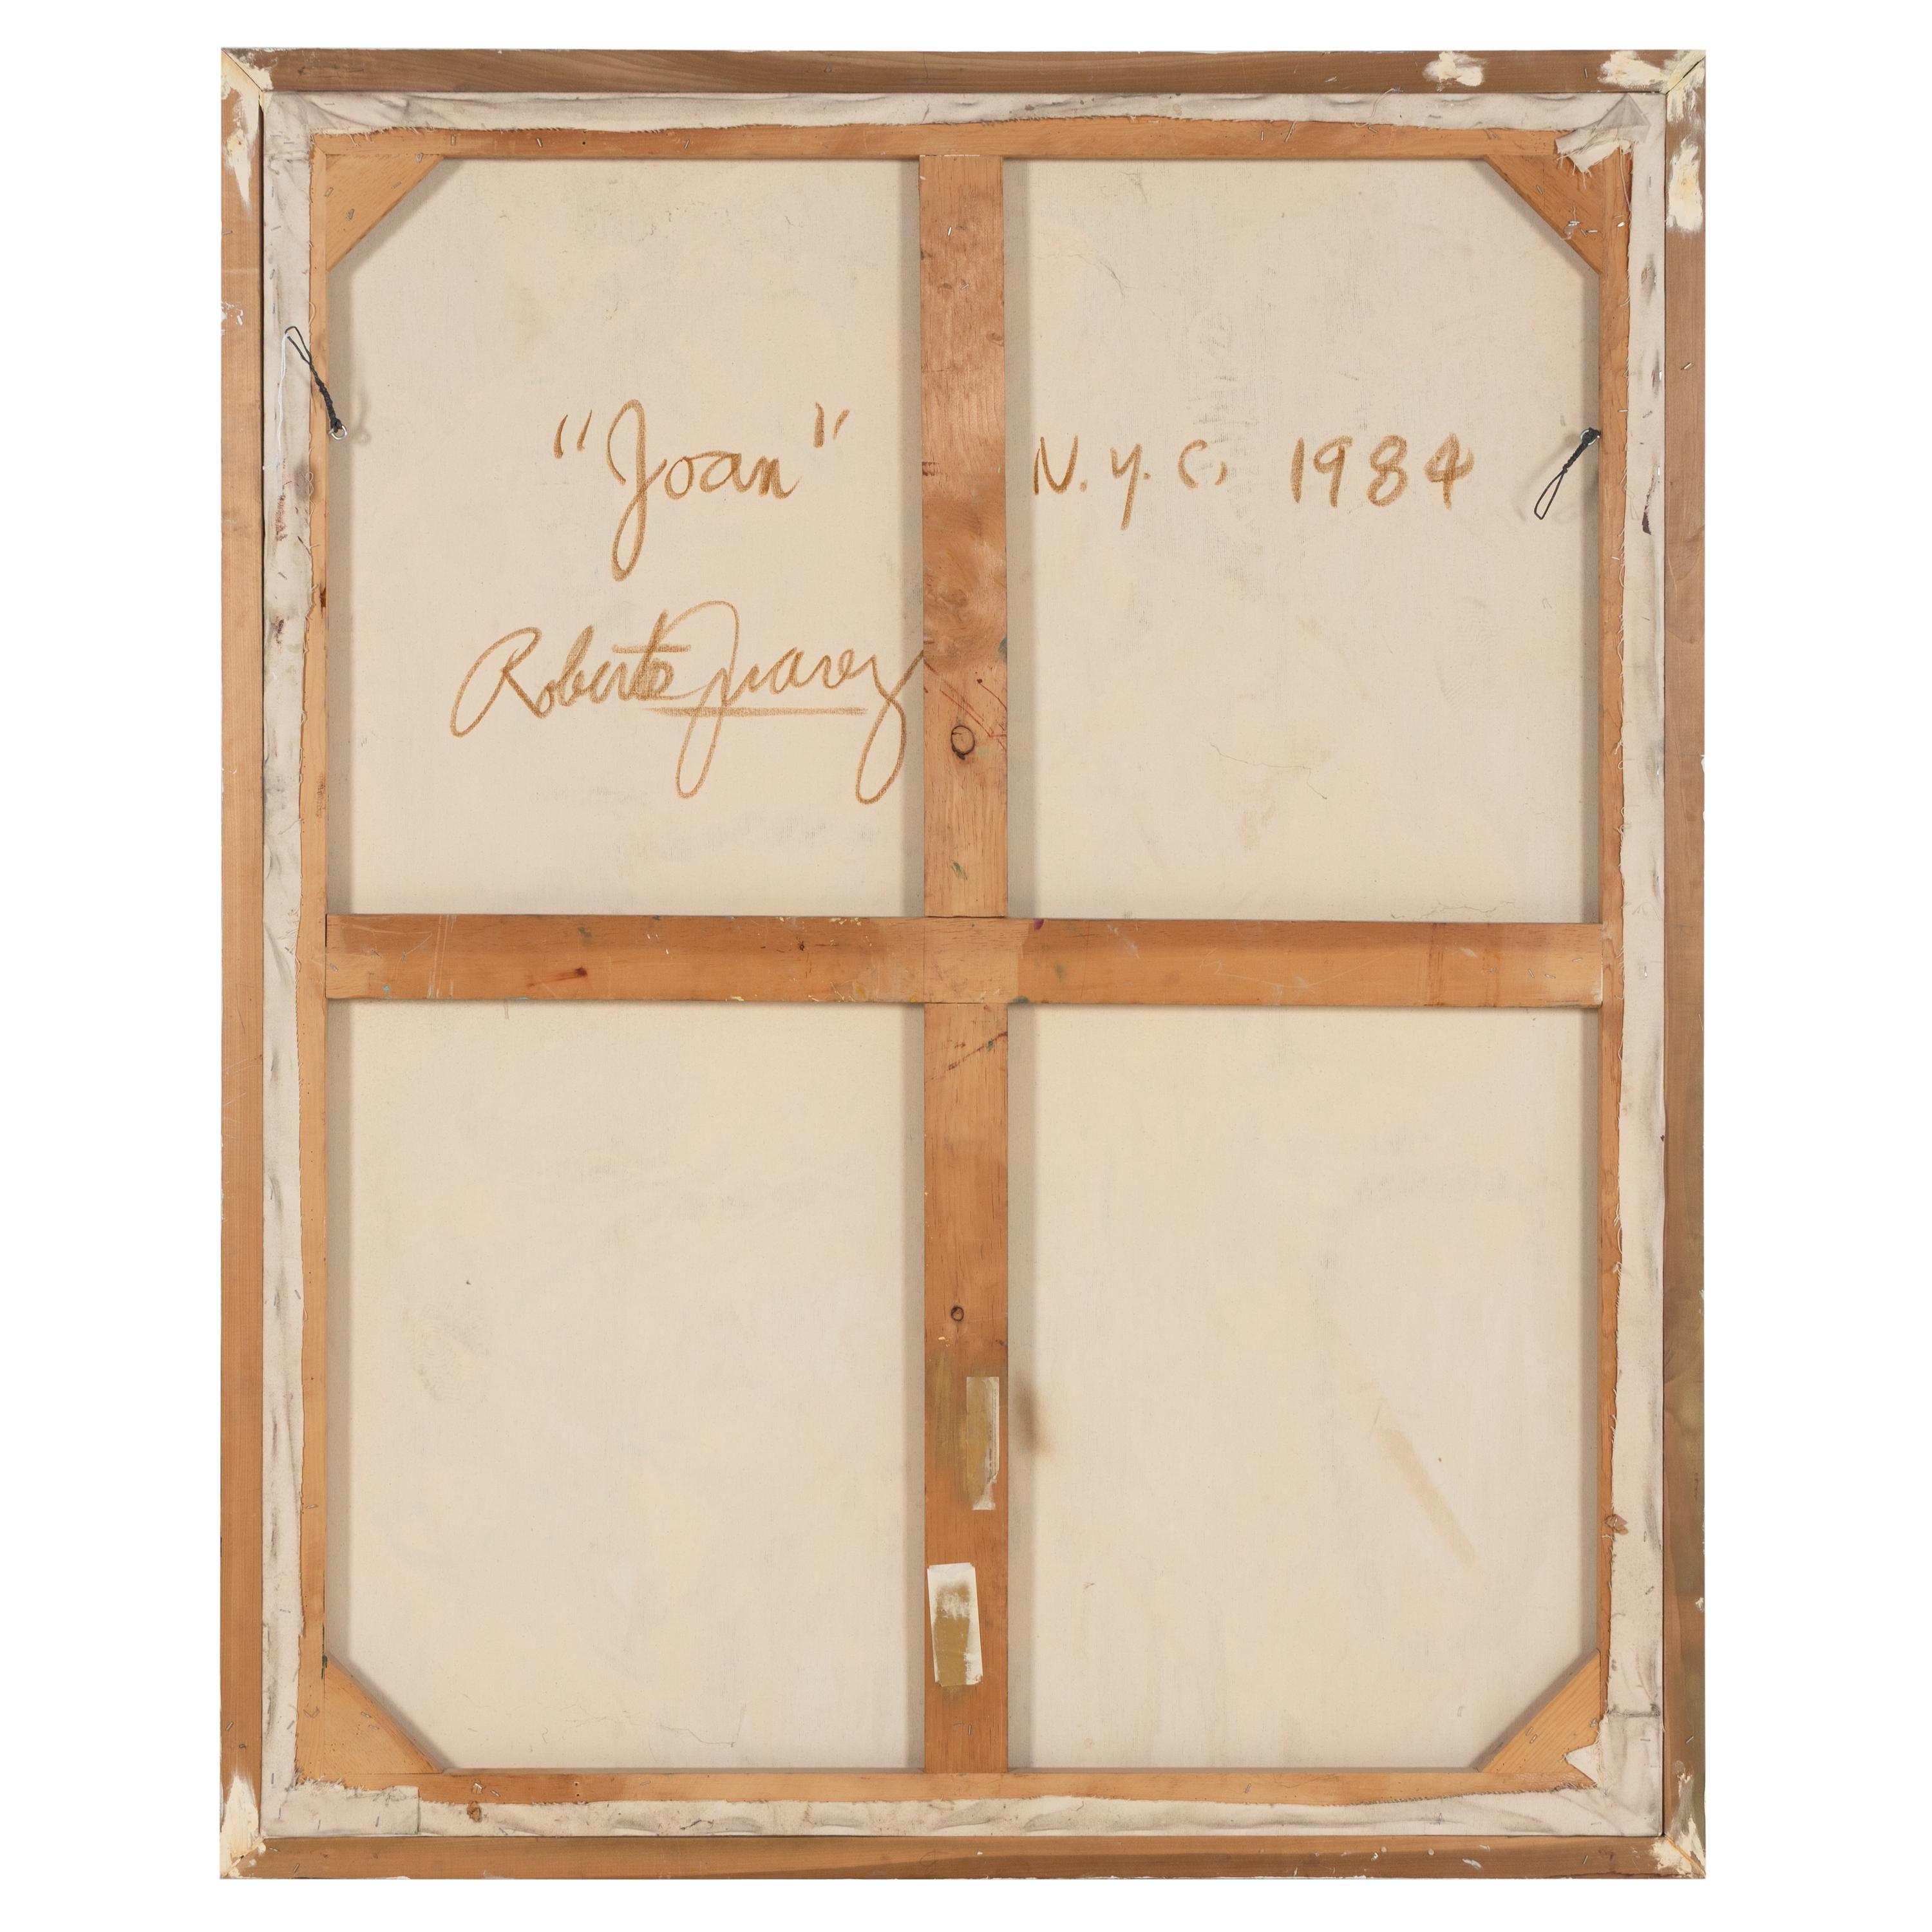 "Joan" N.Y.C, 1984
Roberto Juarez